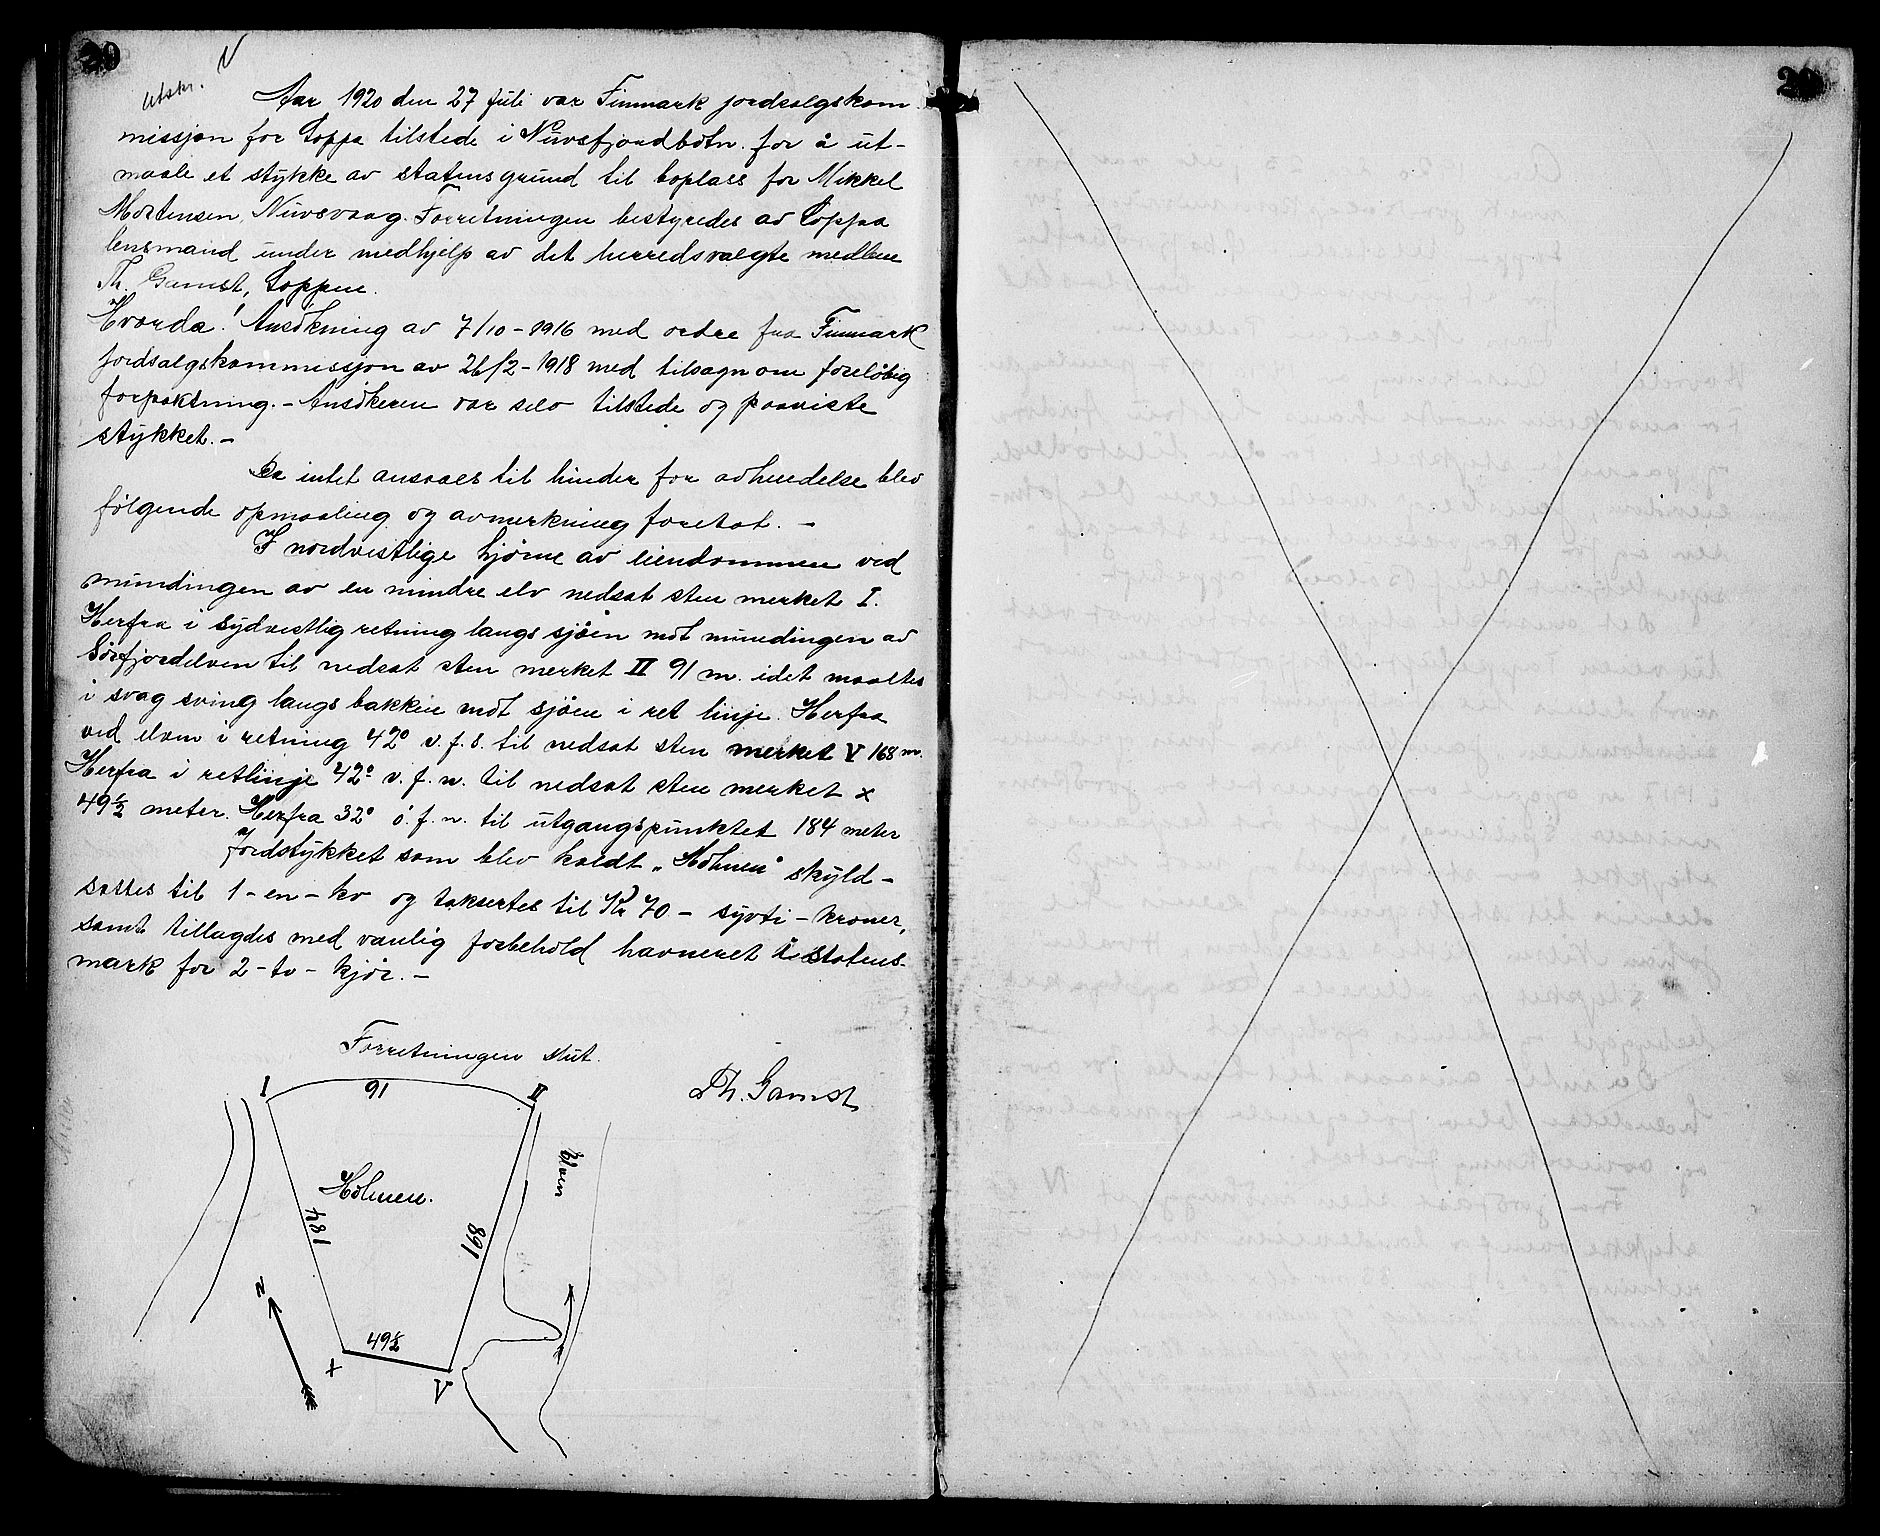 20
Utskr. V
Aar 1920 den 27 juli var Finmark jordsalgskom
missjon for Loppa tilstede i Nuvsfjordbotn for å ut-
maale et stykke av statens grund til boplass for Mikkel
Mortensen, Nuvsvaag. Forretningen bestyredes av Loppa
lensmand under medhjelp av det herredsvalgte medlem
Th. Gamst, Loppen.
Hvorda! Ansökning av 7/10-1916 med ordre fra Finmark
jordsalgskommissjon av 26/2-1918 med tilsagn om forelöbig
forpaktning. - Ansökeren var selv tilstede og paaviste
stykket. -
Da intet ansaaes til hinder for avhendelse blev
følgende opmaaling og avmerkning foretat. -
I nordvestlige hjørne av eiendommen ved
mundingen av en mindre elv nedsat sten merket I.
Herfra i sydvestlig retning langs sjöen mot mundingen av
Sörfjordelven til nedsat sten merket II 91 m. idet maaltes
i svag sving langs bakken mot sjöen i ret linje. Herfra
ved elven i retning 42° v. f. s. til nedsat sten merket V 168 m.
Herfra i retlinje 42° v. f. n. til nedsat sten merket x
49½ meter. Herfra 32° ö. f. n. til utgangspunktet 184 meter
Jordstykket som blev kaldt „Holmen" skyld-
sattes til 1 - en - ko og taksertes til Kr 70 - sytti - kroner,
samt tillagdes med vanlig forbehold havneret i statens-
mark for 2 - to - kjör. -
Forretningen slut.
Th. Gamst
I 91 II
Elven
Holmen.
184
168
N
49½
x
V
20